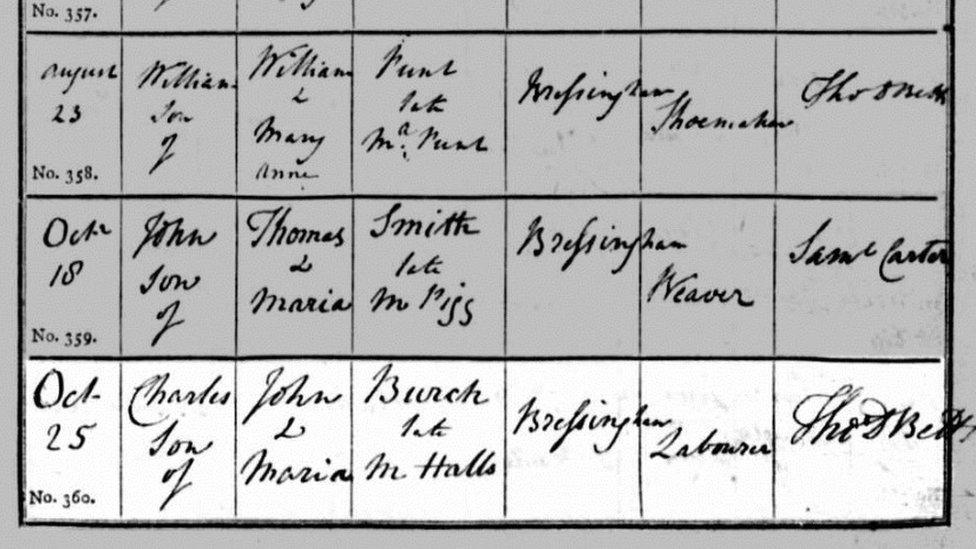 No. 357.
August William William Punt Bressingham Shoemaker Thos D Betts
23 Son & late
of Mary Ma. Punt
No. 358. Anne
Octr John Thomas Smith Bressingham Weaver Saml Carter
18 Son & late
of Maria M Pigg
No. 359.
Oct. Charles John Burch Bressingham Labourer Thos D Betts
25 Son & late
of Maria M Halls
No. 360.